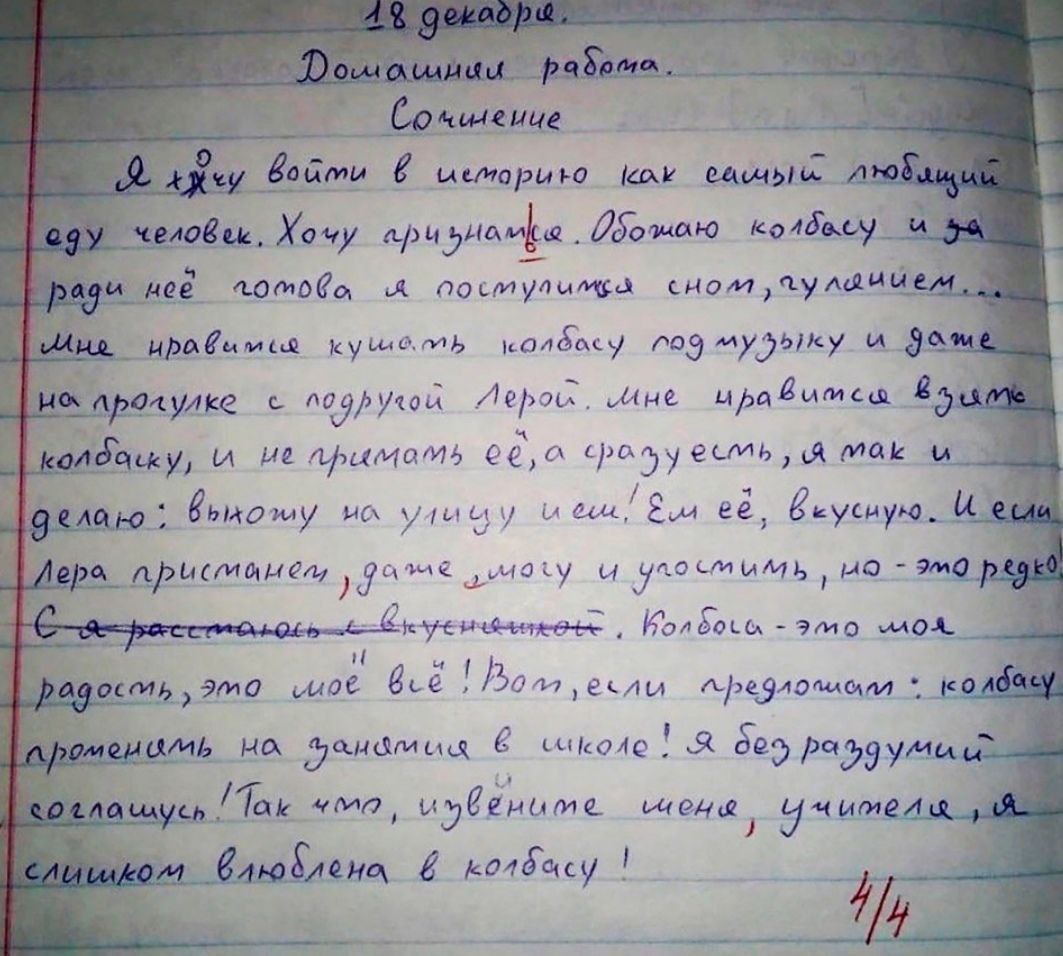 18 декабря.
Домашняя работа.
Сочинение
Я хочу войти в историю как самый любящий
еду человек. Хочу признаться. Обожаю колбасу и за
ради неё готова я поступится сном, гулянием...
Мне нравится кушать колбасу под музыку и даже
на прогулке с подругой Лерой. Мне нравится взять
колбаску, и не примать её, а сразу есть, я так и
делаю: выхожу на улицу и ем! Ем её, вкусную. И если
Лера пристанет, даже, могу и угостить, но - это редко
С я расстаюсь с вкусняшкой. Колбоса - это моя
радость, это моё всё! Вот, если предложат: колбасу
променять на занятия в школе! Я без раздумий
соглашусь! Так что, извините меня, учителя, я
слишком влюблена в колбасу!
4/4